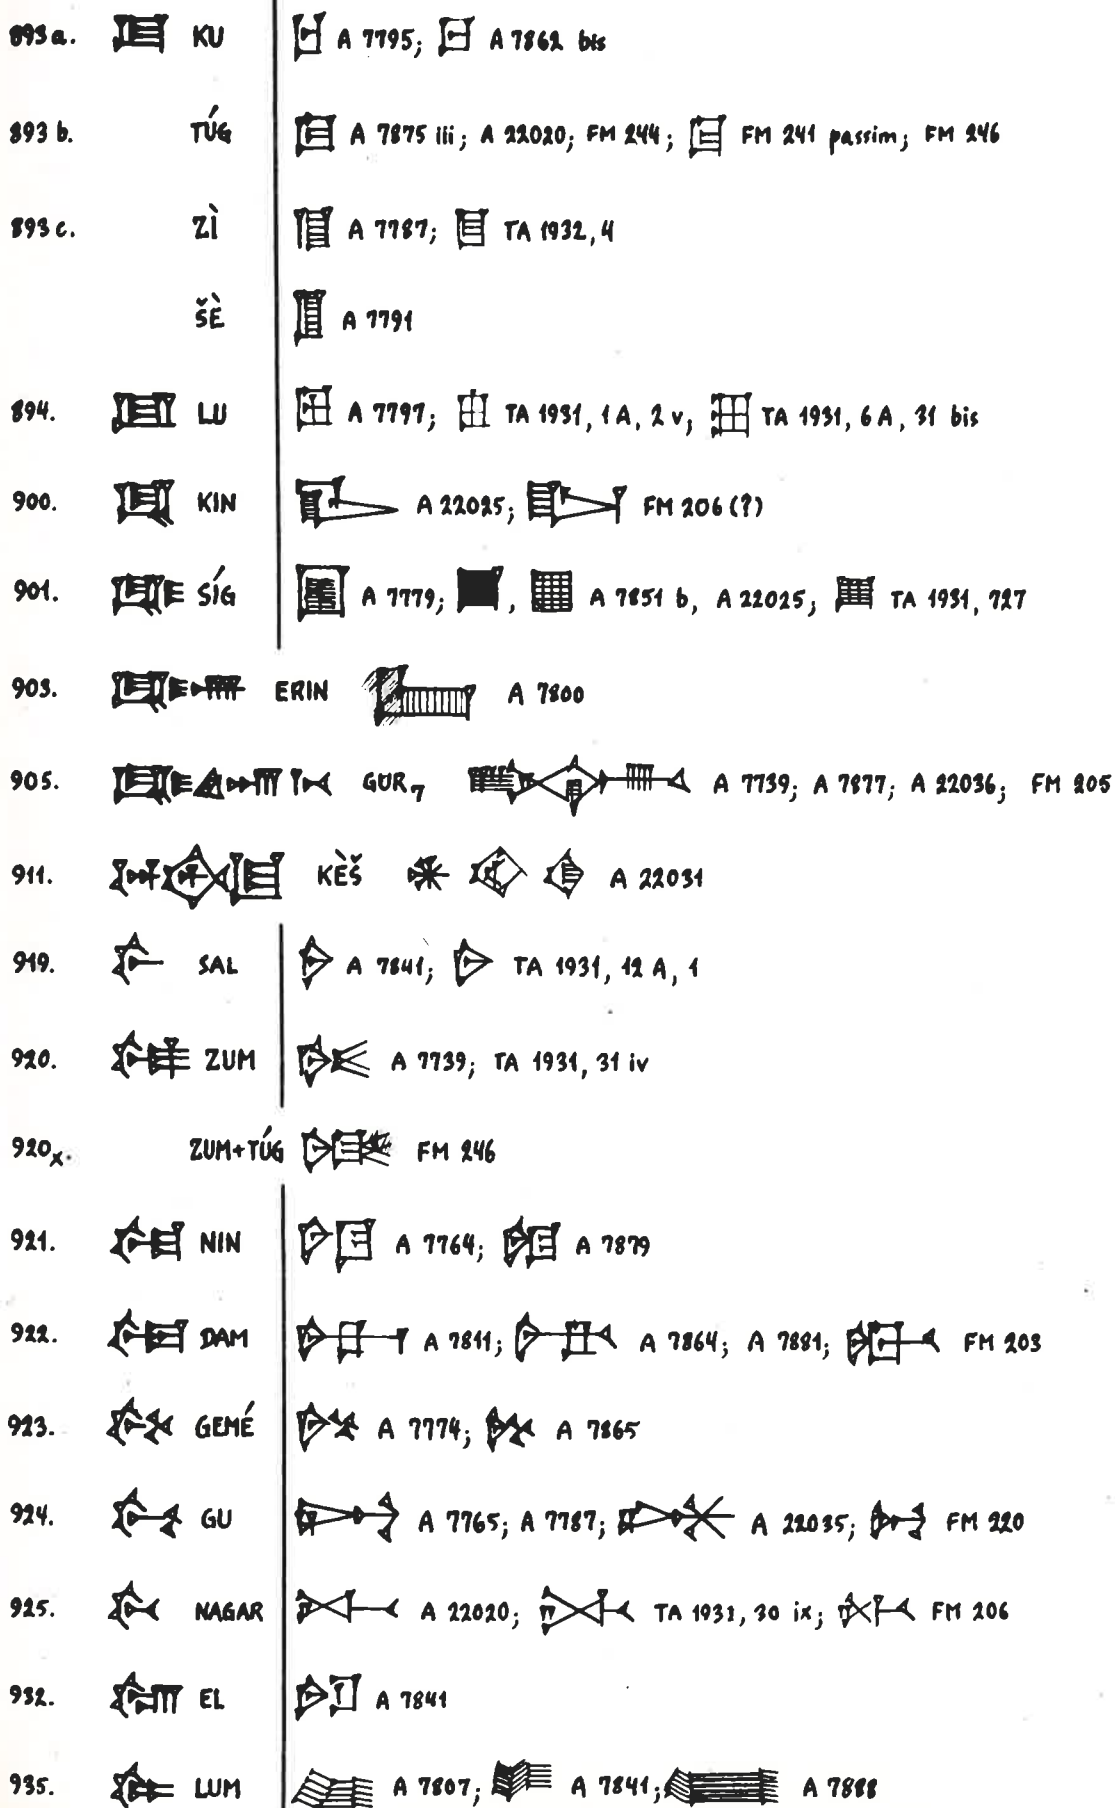 893a. KU A 7795; A 7862 bis
893 b. TÚG A 7875 iii; A 22020; FM 244; FM 241 passim; FM 246
893 c. ZÌ A 7787; TA 1932, 4
ŠÈ A 7791
894. LU A 7797; TA 1931, 1 A, 2 v; TA 1931, 6 A, 31 bis
900. KIN A 22025; FM 206 (?)
901. SÍG A 7779; , A 7851 b, A 22025; TA 1931, 727
903. ERIN A 7800
905. GUR₇ A 7739; A 7877; A 22036; FM 205
911. KÈŠ A 22031
919. SAL A 7841; TA 1931, 12 A, 1
920. ZUM A 7739; TA 1931, 31 iv
920x. ZUM+TÚG FM 246
921. NIN A 7764; A 7879
922. DAM A 7811; A 7864; A 7881; FM 203
923. GEMÉ A 7774; A 7865
924. GU A 7765; A 7787; A 22035; FM 220
925. NAGAR A 22020; TA 1931, 30 ix; FM 206
932. EL A 7841
935. LUM A 7807; A 7841; A 7888